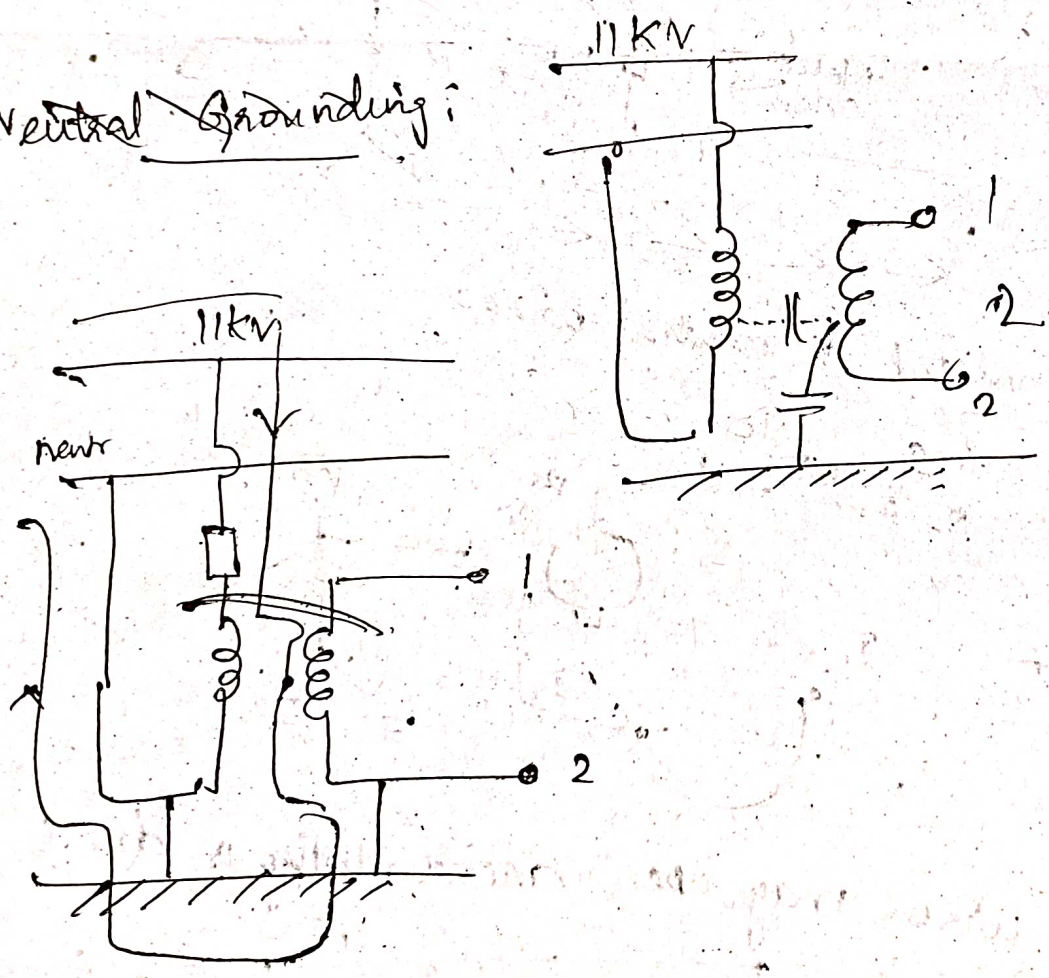 Neutral Grounding:
11KV
1
2
2
11KV
neutr
1
2